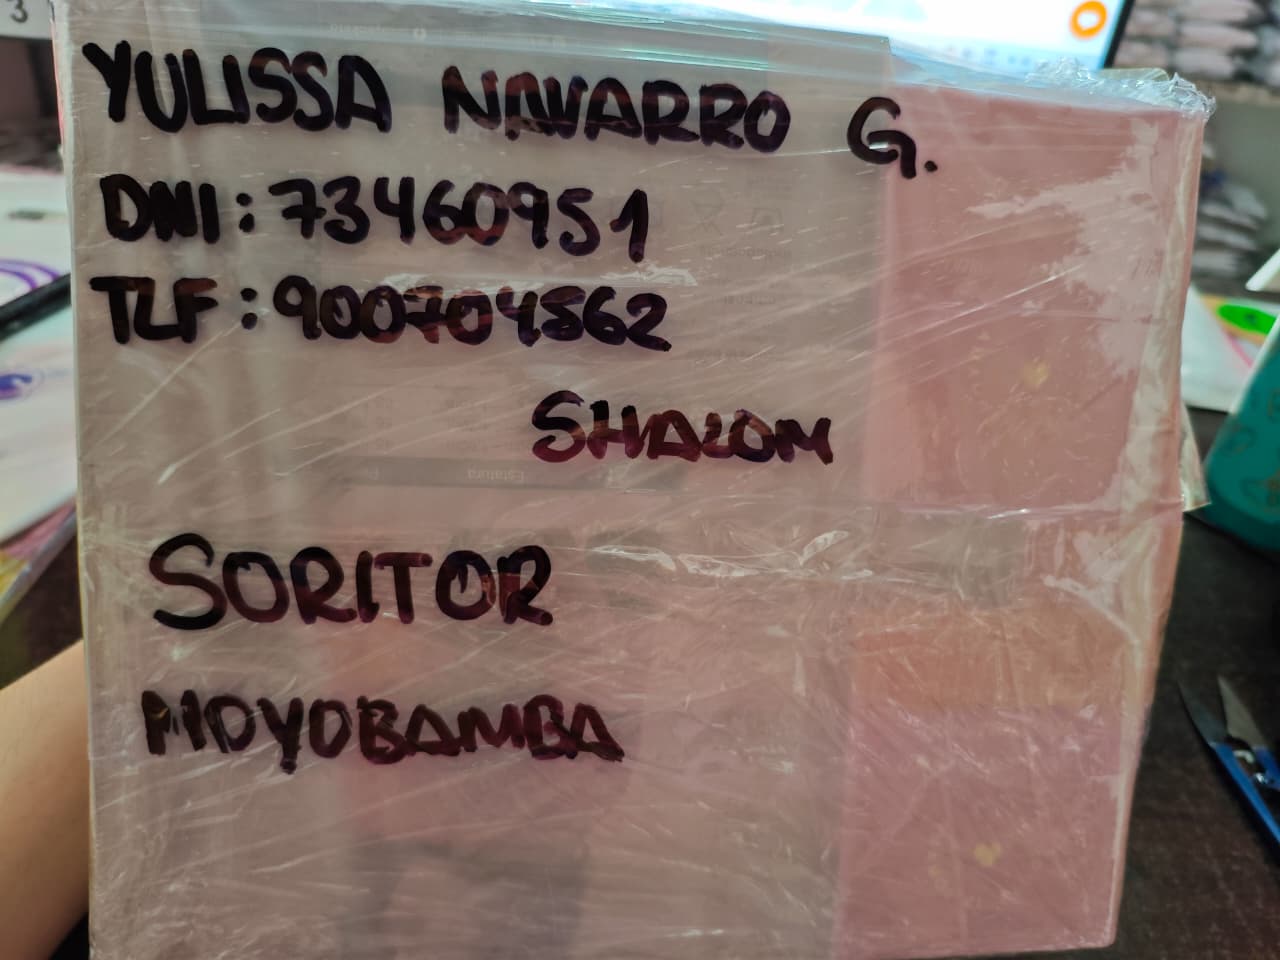 YULISSA NAVARRO G.
DNI: 73460951
TLF: 900704562
SHALOM
SORITOR
MOYOBAMBA
Estatura
3